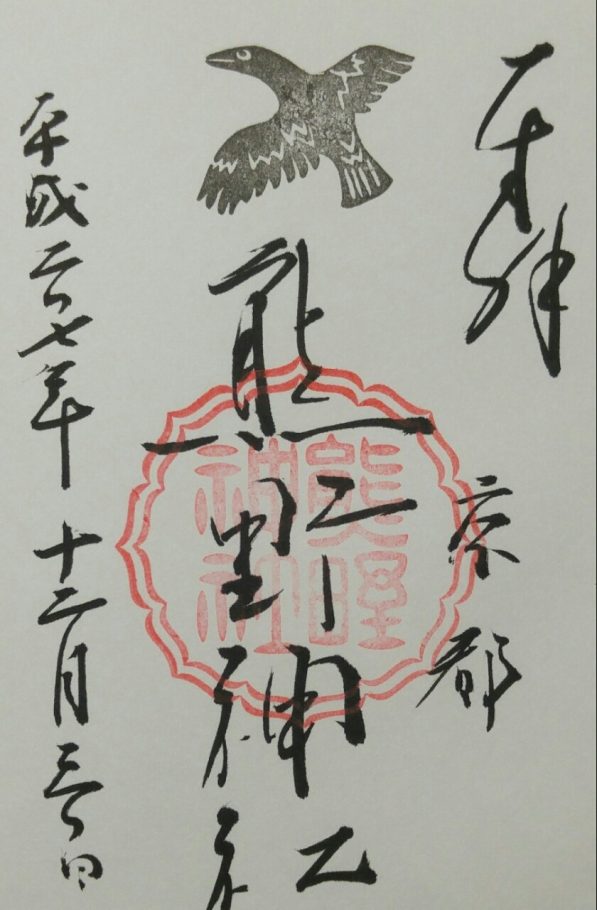 奉拝
京都
熊野神社
熊野神社
平成二十七年十二月三十日